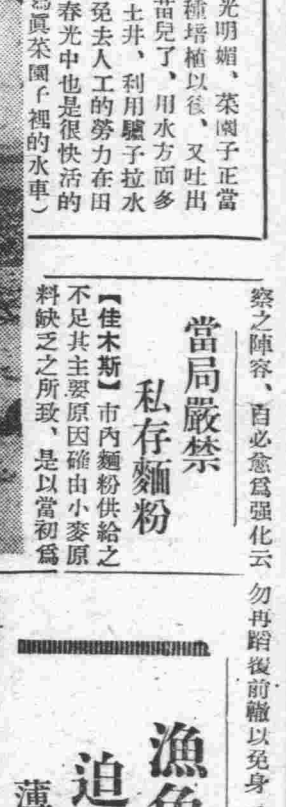 光明媚、菜園子正當
種培植以後、又吐出
苗兒了、用水方面多
土井、利用驢子拉水
免去人工的勞力在田
春光中也是很快活的
爲眞菜園子裡的水車）
察之陣容、自必愈爲强化云
當局嚴禁
私存麵粉
【佳木斯】市內麵粉供給之
不足其主要原因確由小麥原
料缺乏之所致、是以當初爲
勿再蹈復前轍以免身
漁
迫
薄